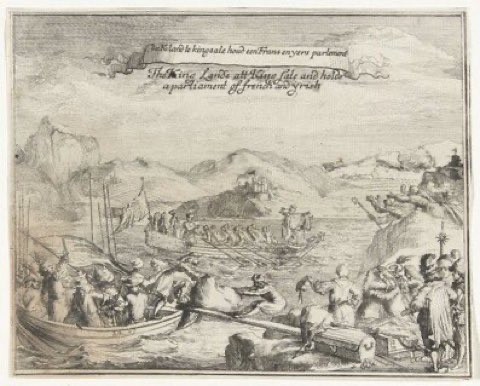 land te kingsale houd een Frans en yers parlement
The King Lands att Kings sale and holds
a parliament of french and yrish